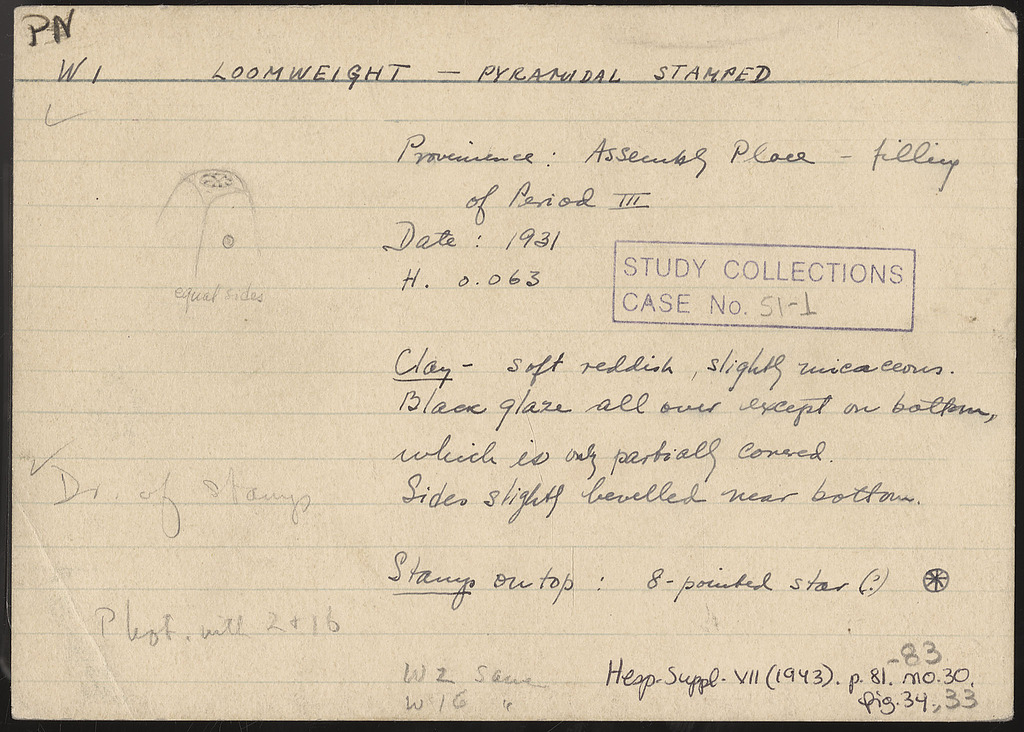 PN
W 1 LOOMWEIGHT — PYRAMIDAL STAMPED
Provenience: Assembly Place - filling
of Period III
Date: 1931
H. 0.063
STUDY COLLECTIONS
CASE No. 51-1
equal sides
Clay - soft reddish, slightly micaceous.
Black glaze all over except on bottom,
which is only partially covered.
Sides slightly bevelled near bottom.
Dr. of stamps
Stamp on top: 8-pointed star (?)
Phot. with 2 + 16
W 2 Same
W 16 "
Hesp. Suppl. VII (1943). p. 81.-83 no. 30.
fig. 34, 33